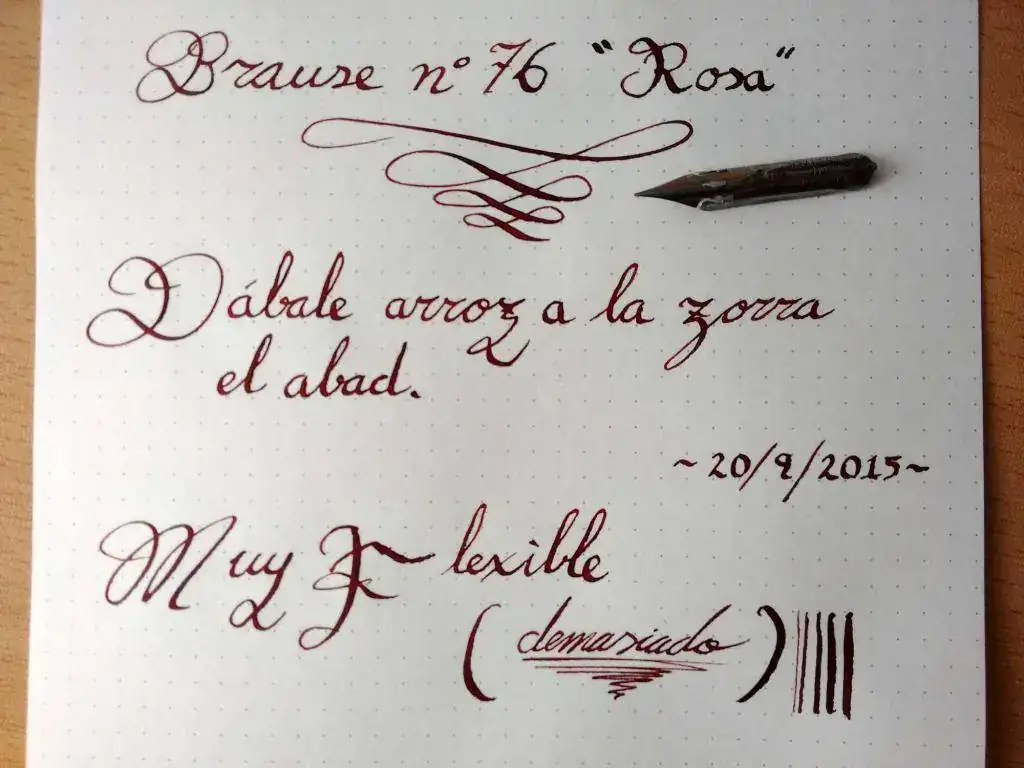 Brause nº 76 "Rosa"
Dábale arroz a la zorra
el abad.
~20/9/2015~
Muy Flexible
(demasiado)